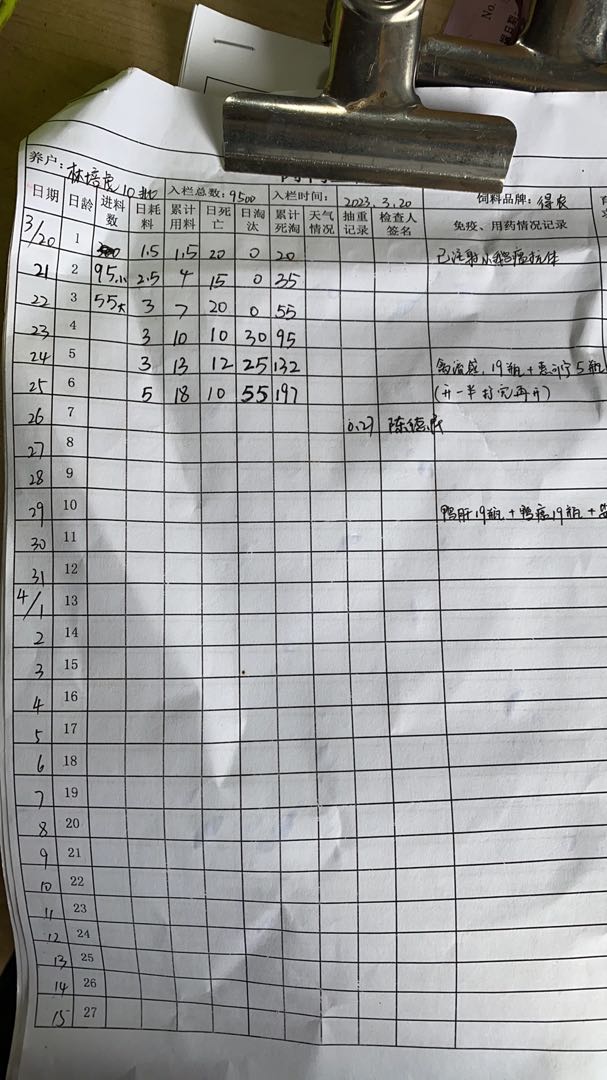 No.
养户:林培虎 10批 入栏总数:9500 入栏时间: 2023.3.20 饲料品牌:得农
日期 日龄 进料数 日耗料 累计用料 日死亡 日淘汰 累计死淘 天气情况 抽重记录 检查人签名 免疫、用药情况记录
3/20 1 1.5 1.5 20 0 20
21 2 95小 2.5 4 15 0 35
22 3 55大 3 7 20 0 55
23 4 3 10 10 30 95
24 5 3 13 12 25 132 禽流感,19瓶+ 5瓶
25 6 5 18 10 55 197 (开一半打完再开)
26 7 0.27 陈德
27 8
28 9
29 10 鸭肝19瓶+鸭疫19瓶+
30 11
31 12
4/1 13
2 14
3 15
4 16
5 17
6 18
7 19
8 20
9 21
10 22
11 23
12 24
13 25
14 26
15 27